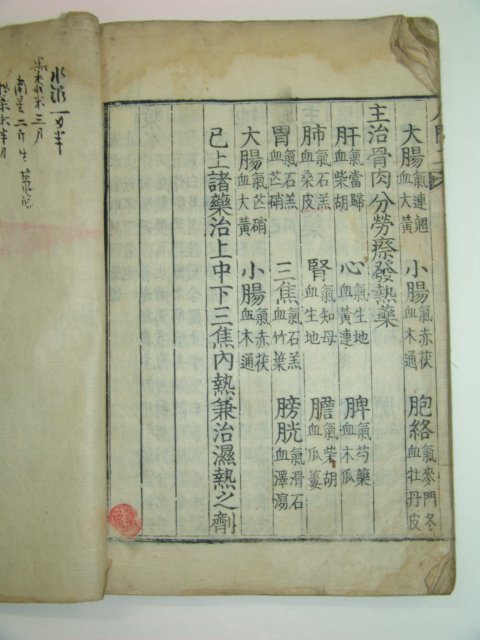 大腸氣連翹血大黃 小腸氣赤茯血木通 胞絡氣麥門冬血牡丹皮
主治骨肉分勞瘵發熱藥
肝氣當歸血柴胡 心氣生地血黃連 脾氣芍藥血木瓜
肺氣石羔血桑皮 腎氣知母血生地 膽氣柴胡血瓜蔞
胃氣石羔血芒硝 三焦氣石羔血竹葉 膀胱氣滑石血澤瀉
大腸氣芒硝血大黃 小腸氣赤茯血木通
已上諸藥治上中下三焦內熱兼治濕熱之劑